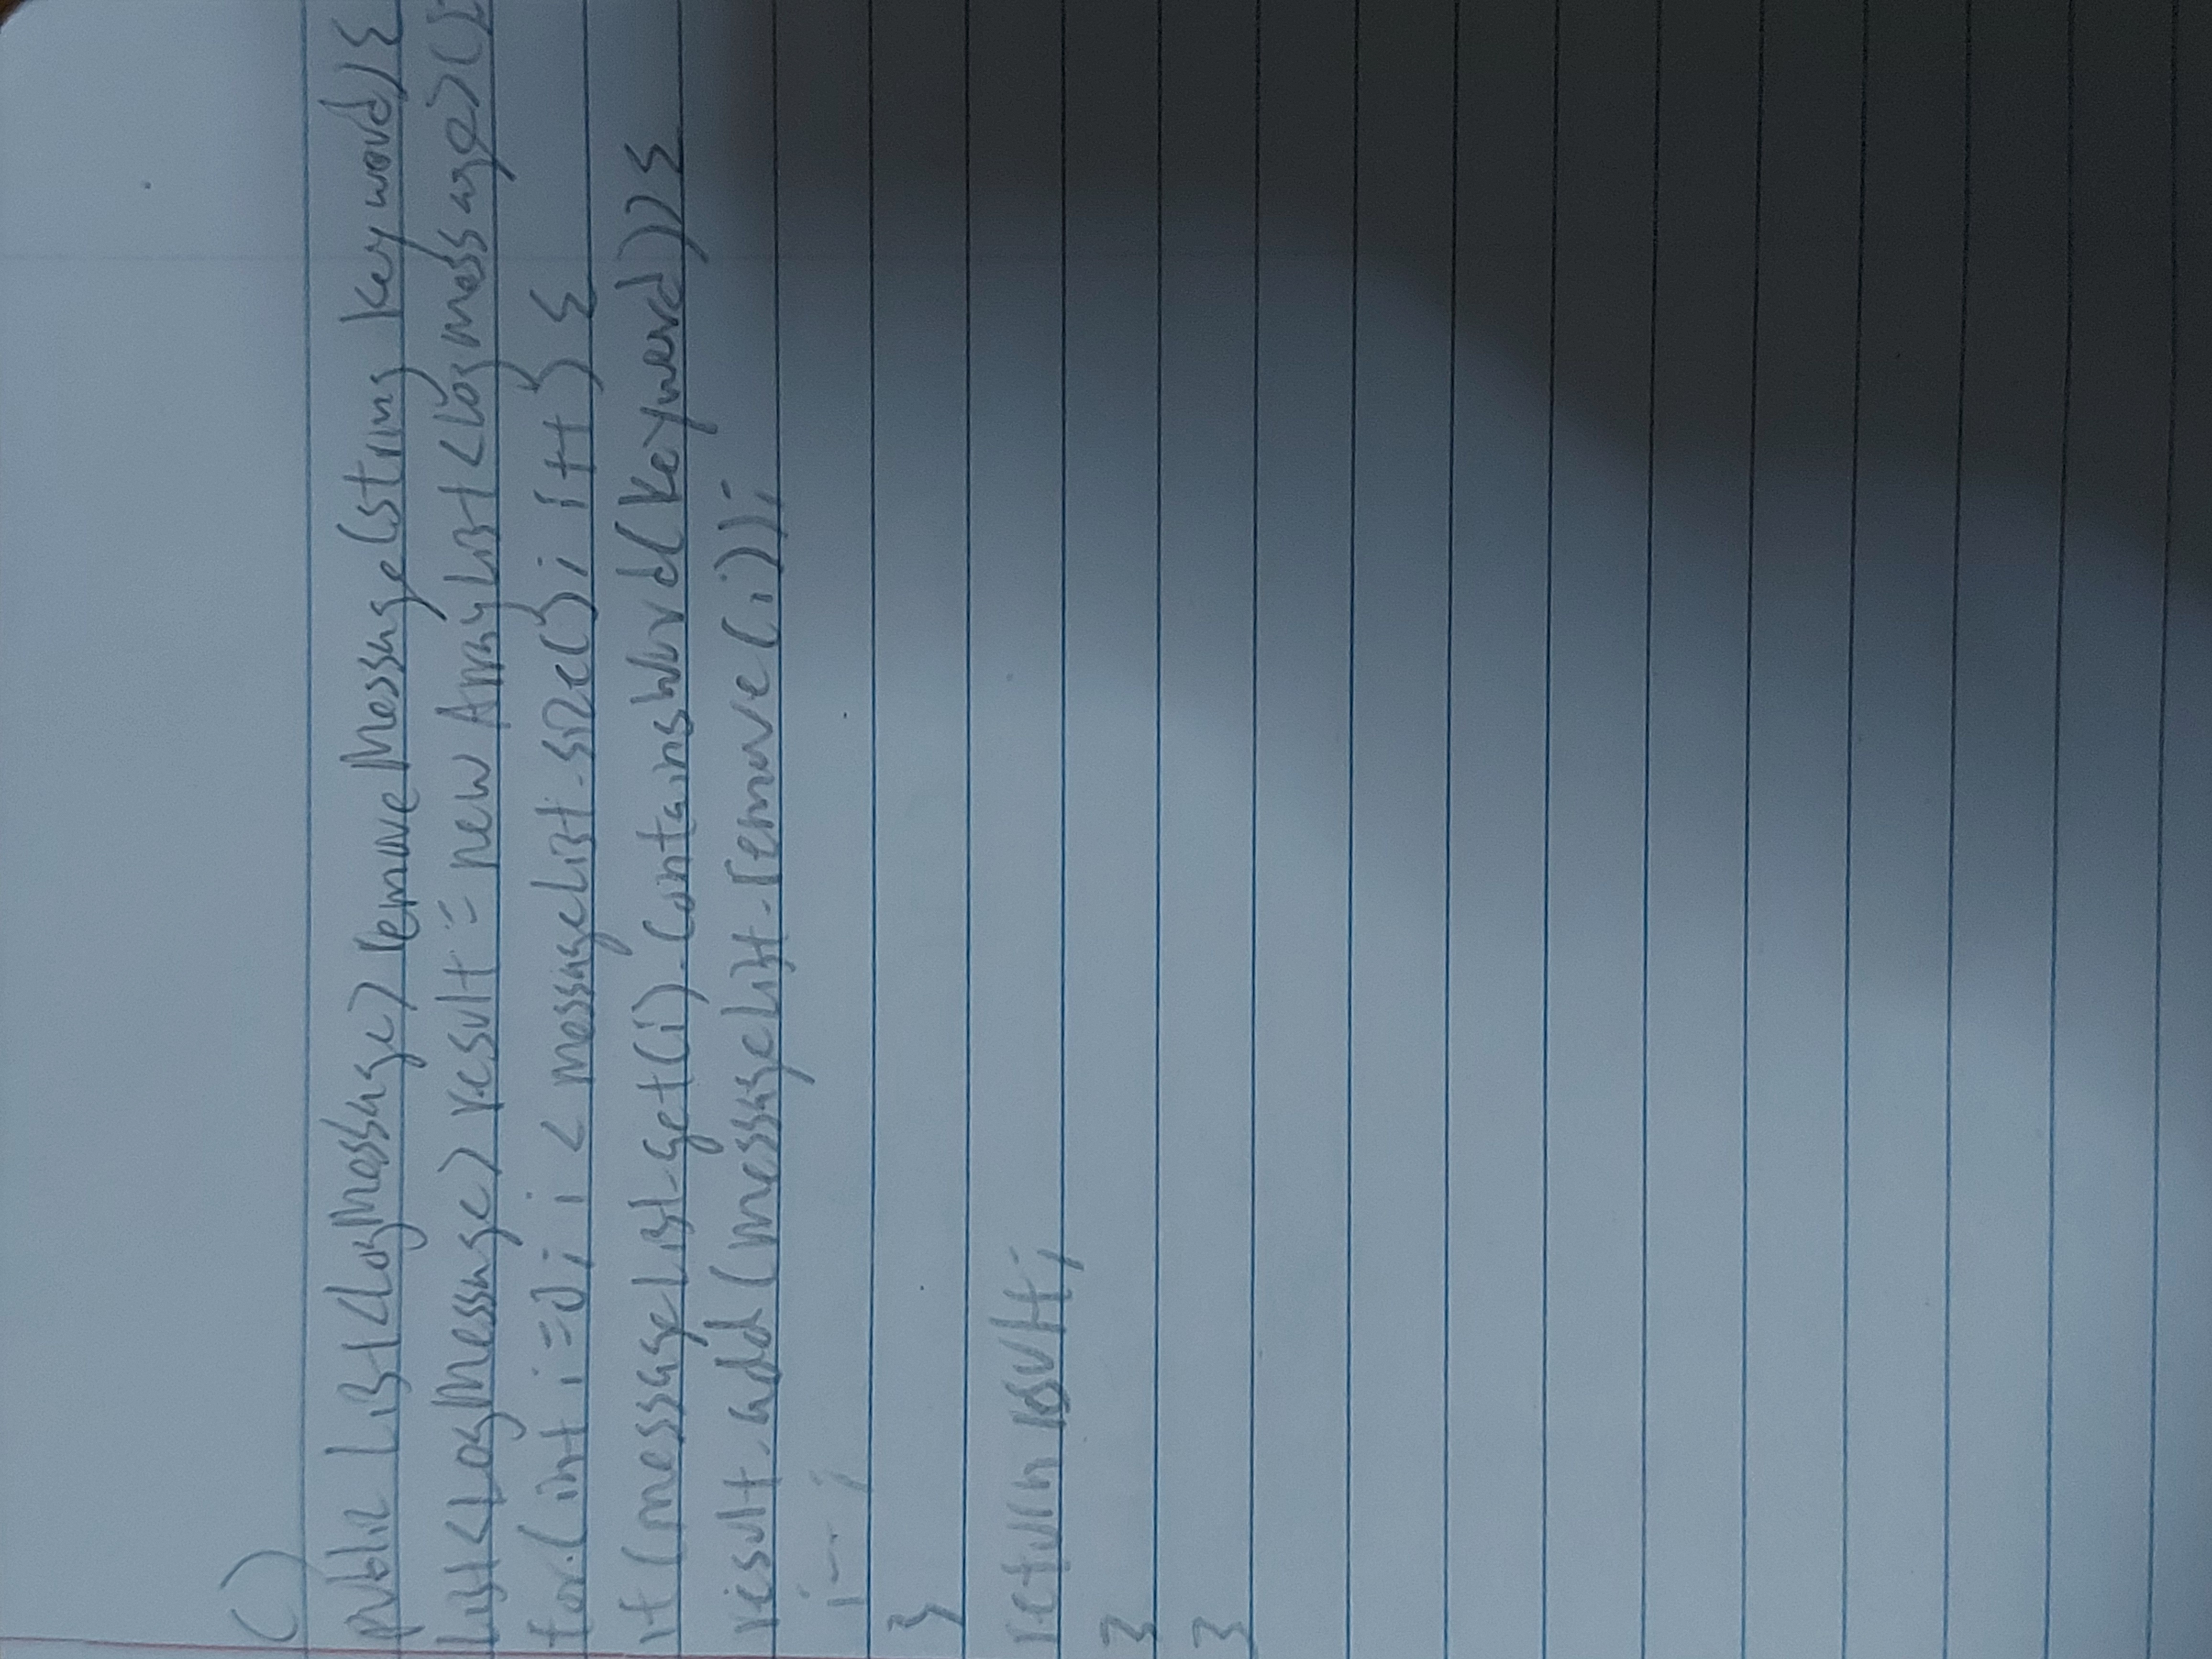 C)
public List<LogMessage> removeMessage(string keyword){
List<LogMessage> result = new ArrayList<LogMessage>();
for(int i=0; i < messageList.size(); i++) {
if(messageList.get(i).containsWord(keyword)){
result.add(messageList.remove(i));
i--;
}
return result;
}
}